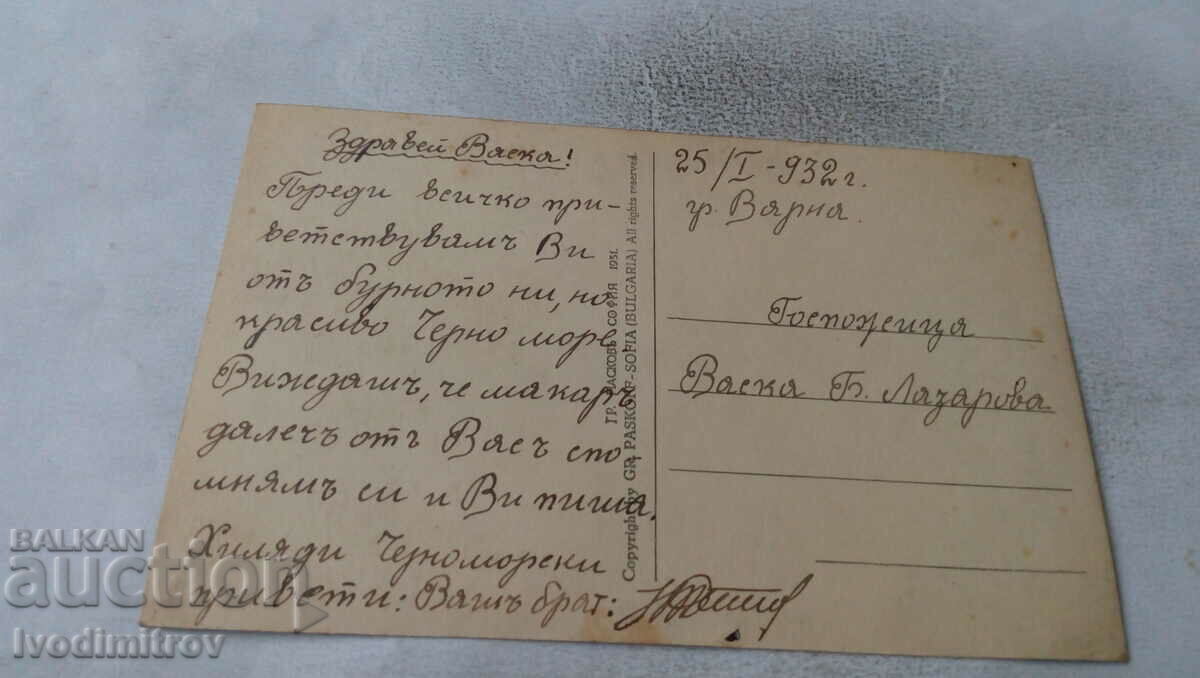 Здравей Васка!
Преди всичко при-
ветствувамъ Ви
отъ бурното ни, но
красиво Черно море.
Виждашъ, че макаръ
далечъ отъ Васъ спо
мнямъ си и Ви пиша.
Хиляди Черноморски
привети: Вашъ братъ:
ГР. ПАСКОВЪ СОФИЯ 1931.
Copyright by GR. PASKOFF-SOFIA (BULGARIA) All rights reserved.
25/I-932 г.
гр. Варна.
Госпожица
Васка Б. Лазарова
BALKAN
auction
Ivodimitrov